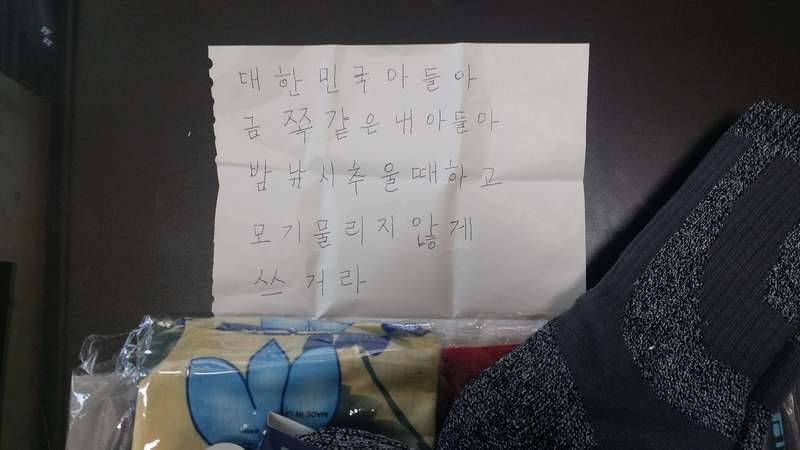 대한민국아들아
금쪽같은내아들아
밤낚시추울때하고
모기물리지않게
쓰거라
MADE IN